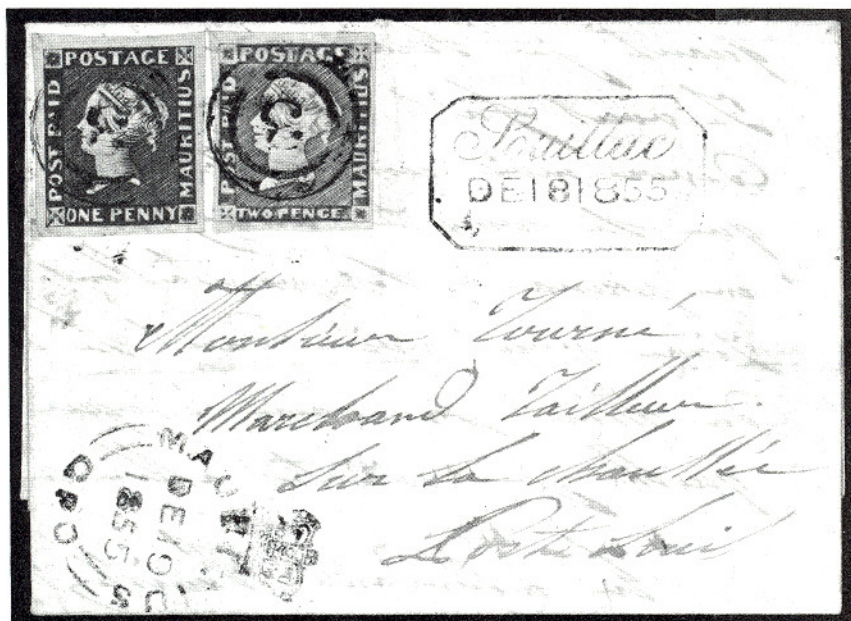 POSTAGE
POST PAID
MAURITIUS
ONE PENNY
POSTAGE
POST PAID
MAURITIUS
TWO PENCE
Souillac
DE 18 1855
Monsieur Tourné
Marchand Tailleur.
Sur la chaussée
Port Loui
MAURITIUS
DE 19
1855
GPO